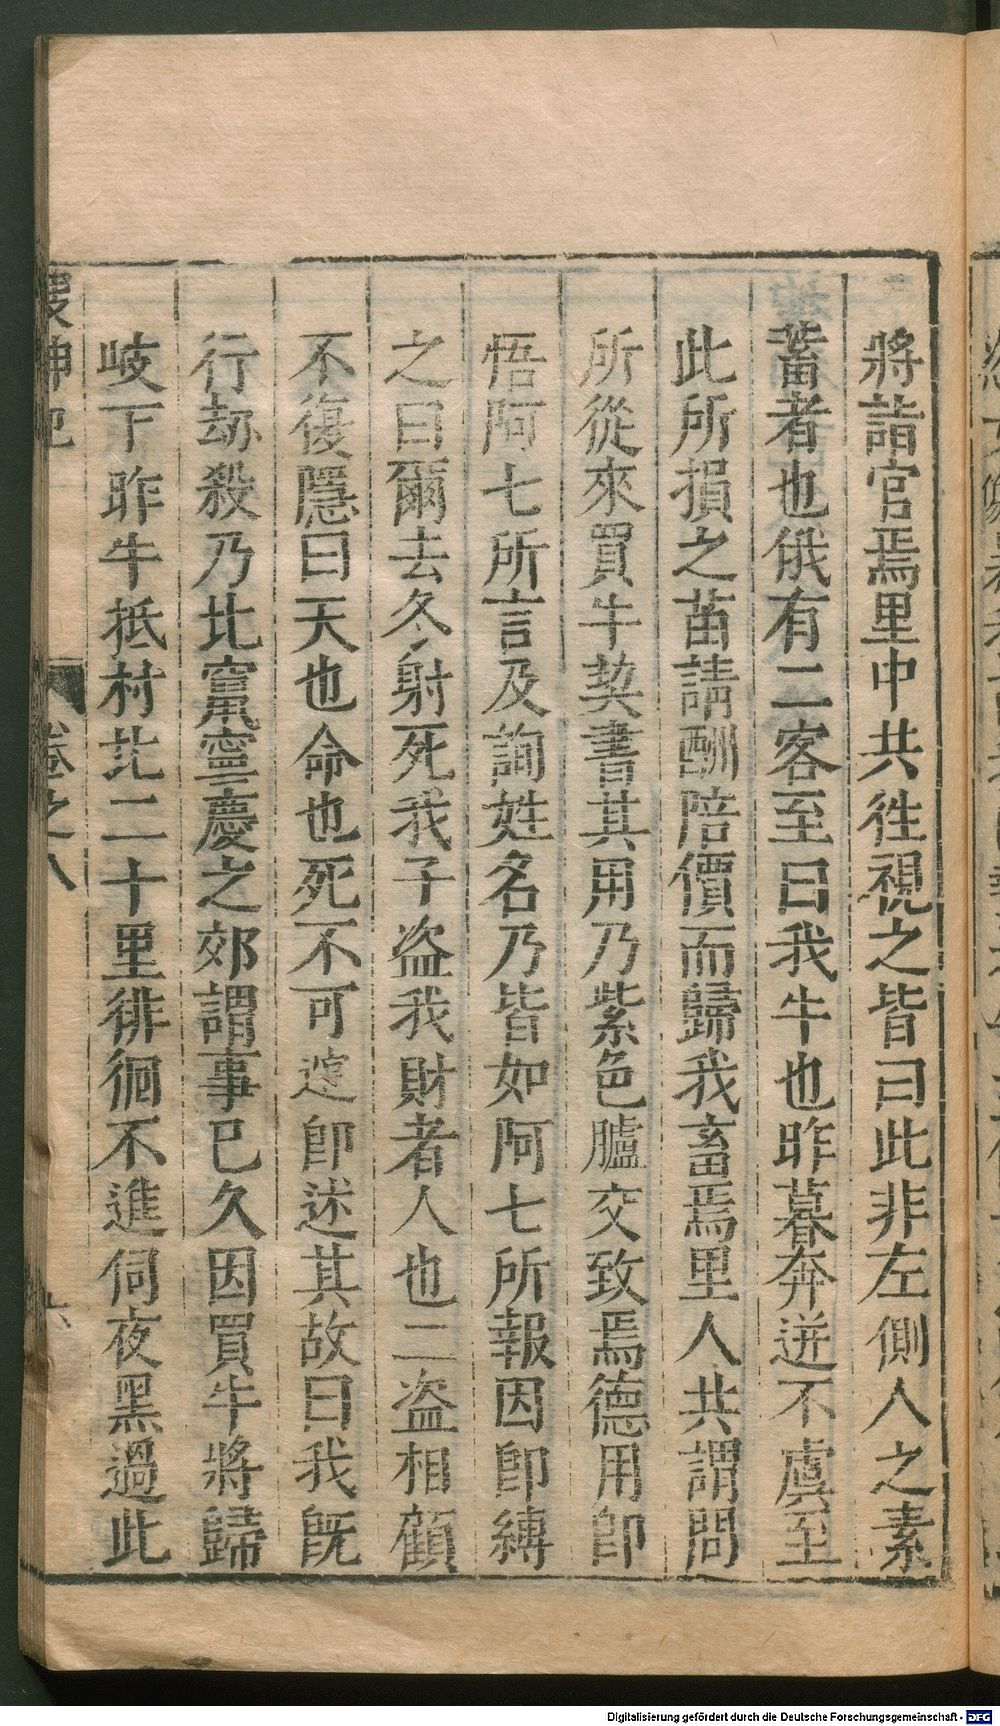 將詣官焉里中共往視之皆曰此非左側人之素
蓄者也俄有二客至曰我牛也昨暮奔迸不虞至
此所損之苗請酬陪價而歸我畜焉里人共謂問
所從來買牛契書其用乃紫色臚交致焉德用即
悟阿七所言及詢姓名乃皆如阿七所報因即縛
之曰爾去冬射死我子盜我財者人也二盜相顧
不復隱曰天也命也死不可逭即述其故曰我既
行劫殺乃北竄寧慶之郊謂事已久因買牛將歸
岐下昨牛抵村北二十里徘徊不進伺夜黑過此
搜神記
卷之八
六
Digitalisierung gefördert durch die Deutsche Forschungsgemeinschaft - DFG